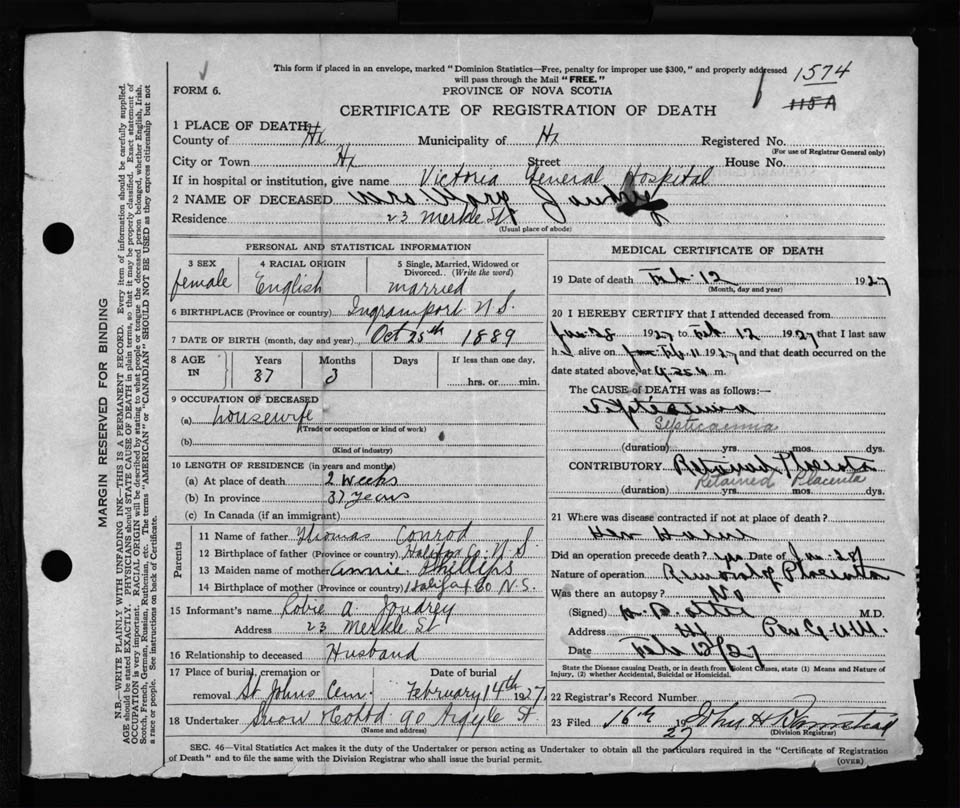 This form if placed in an envelope, marked "Dominion Statistics—Free, penalty for improper use $300," and properly addressed
will pass through the Mail "FREE."
1574
115A
FORM 6.
PROVINCE OF NOVA SCOTIA
CERTIFICATE OF REGISTRATION OF DEATH
1 PLACE OF DEATH
County of Hx Municipality of Hx Registered No.
(For use of Registrar General only)
City or Town Hx Street House No.
If in hospital or institution, give name Victoria General Hospital
2 NAME OF DECEASED Mrs. Mary Joudrey
Residence 23 Merkle St.
(Usual place of abode)
PERSONAL AND STATISTICAL INFORMATION
3 SEX female
4 RACIAL ORIGIN English
5 Single, Married, Widowed or Divorced. (Write the word) married
6 BIRTHPLACE (Province or country) Ingramport N.S.
7 DATE OF BIRTH (month, day and year) Oct 25th 1889
8 AGE IN Years Months Days If less than one day,
37 3 hrs. or min.
9 OCCUPATION OF DECEASED
(a) housewife
(Trade or occupation or kind of work)
(b)
(Kind of industry)
10 LENGTH OF RESIDENCE (in years and months)
(a) At place of death 2 weeks
(b) In province 37 years
(c) In Canada (if an immigrant)
Parents
11 Name of father Thomas Conrod
12 Birthplace of father (Province or country) Halifax Co. N.S.
13 Maiden name of mother Annie Phillips
14 Birthplace of mother (Province or country) Halifax Co N.S.
15 Informant's name Robie A. Joudrey
Address 23 Merkle St
16 Relationship to deceased Husband
17 Place of burial, cremation or removal St Johns Cem. Date of burial February 14th 1927
18 Undertaker Snow & Co Ltd 90 Argyle St
(Name and address)
MEDICAL CERTIFICATE OF DEATH
19 Date of death Feb. 12 1927
(Month, day and year)
20 I HEREBY CERTIFY that I attended deceased from
Jan 28 1927 to Feb 12 1927 that I last saw
h alive on Feb 11 1927 and that death occurred on the
date stated above, at m.
The CAUSE OF DEATH was as follows:
Septicaemia
Septicaemia
(duration) yrs. mos. dys.
CONTRIBUTORY Retained Placenta
Retained Placenta
(duration) yrs. mos. dys.
21 Where was disease contracted if not at place of death?
Her Home
Did an operation precede death? yes Date of Jan 28
Nature of operation Removal of Placenta
Was there an autopsy? No
(Signed) M.D.
Address
Date Feb 12/27
State the Disease causing Death, or in death from Violent Causes, state (1) Means and Nature of
Injury, (2) whether Accidental, Suicidal or Homicidal.
22 Registrar's Record Number
23 Filed 16th 1927 John H
(Division Registrar)
SEC. 46—Vital Statistics Act makes it the duty of the Undertaker or person acting as Undertaker to obtain all the particulars required in the "Certificate of Registration
of Death" and to file the same with the Division Registrar who shall issue the burial permit.
(OVER)
MARGIN RESERVED FOR BINDING
N.B.—WRITE PLAINLY WITH UNFADING INK—THIS IS A PERMANENT RECORD. Every item of information should be carefully supplied.
AGE should be stated EXACTLY. PHYSICIANS should STATE CAUSE OF DEATH in plain terms, so that it may be properly classified. Exact statement of
OCCUPATION is very important. RACIAL ORIGIN will be described by stating to what people or tongue the deceased person belonged, whether English, Irish,
Scotch, French, German, Russian, Ruthenian, etc. The terms "AMERICAN" or "CANADIAN" SHOULD NOT BE USED as they express citizenship but not
a race or people. See instructions on back of Certificate.